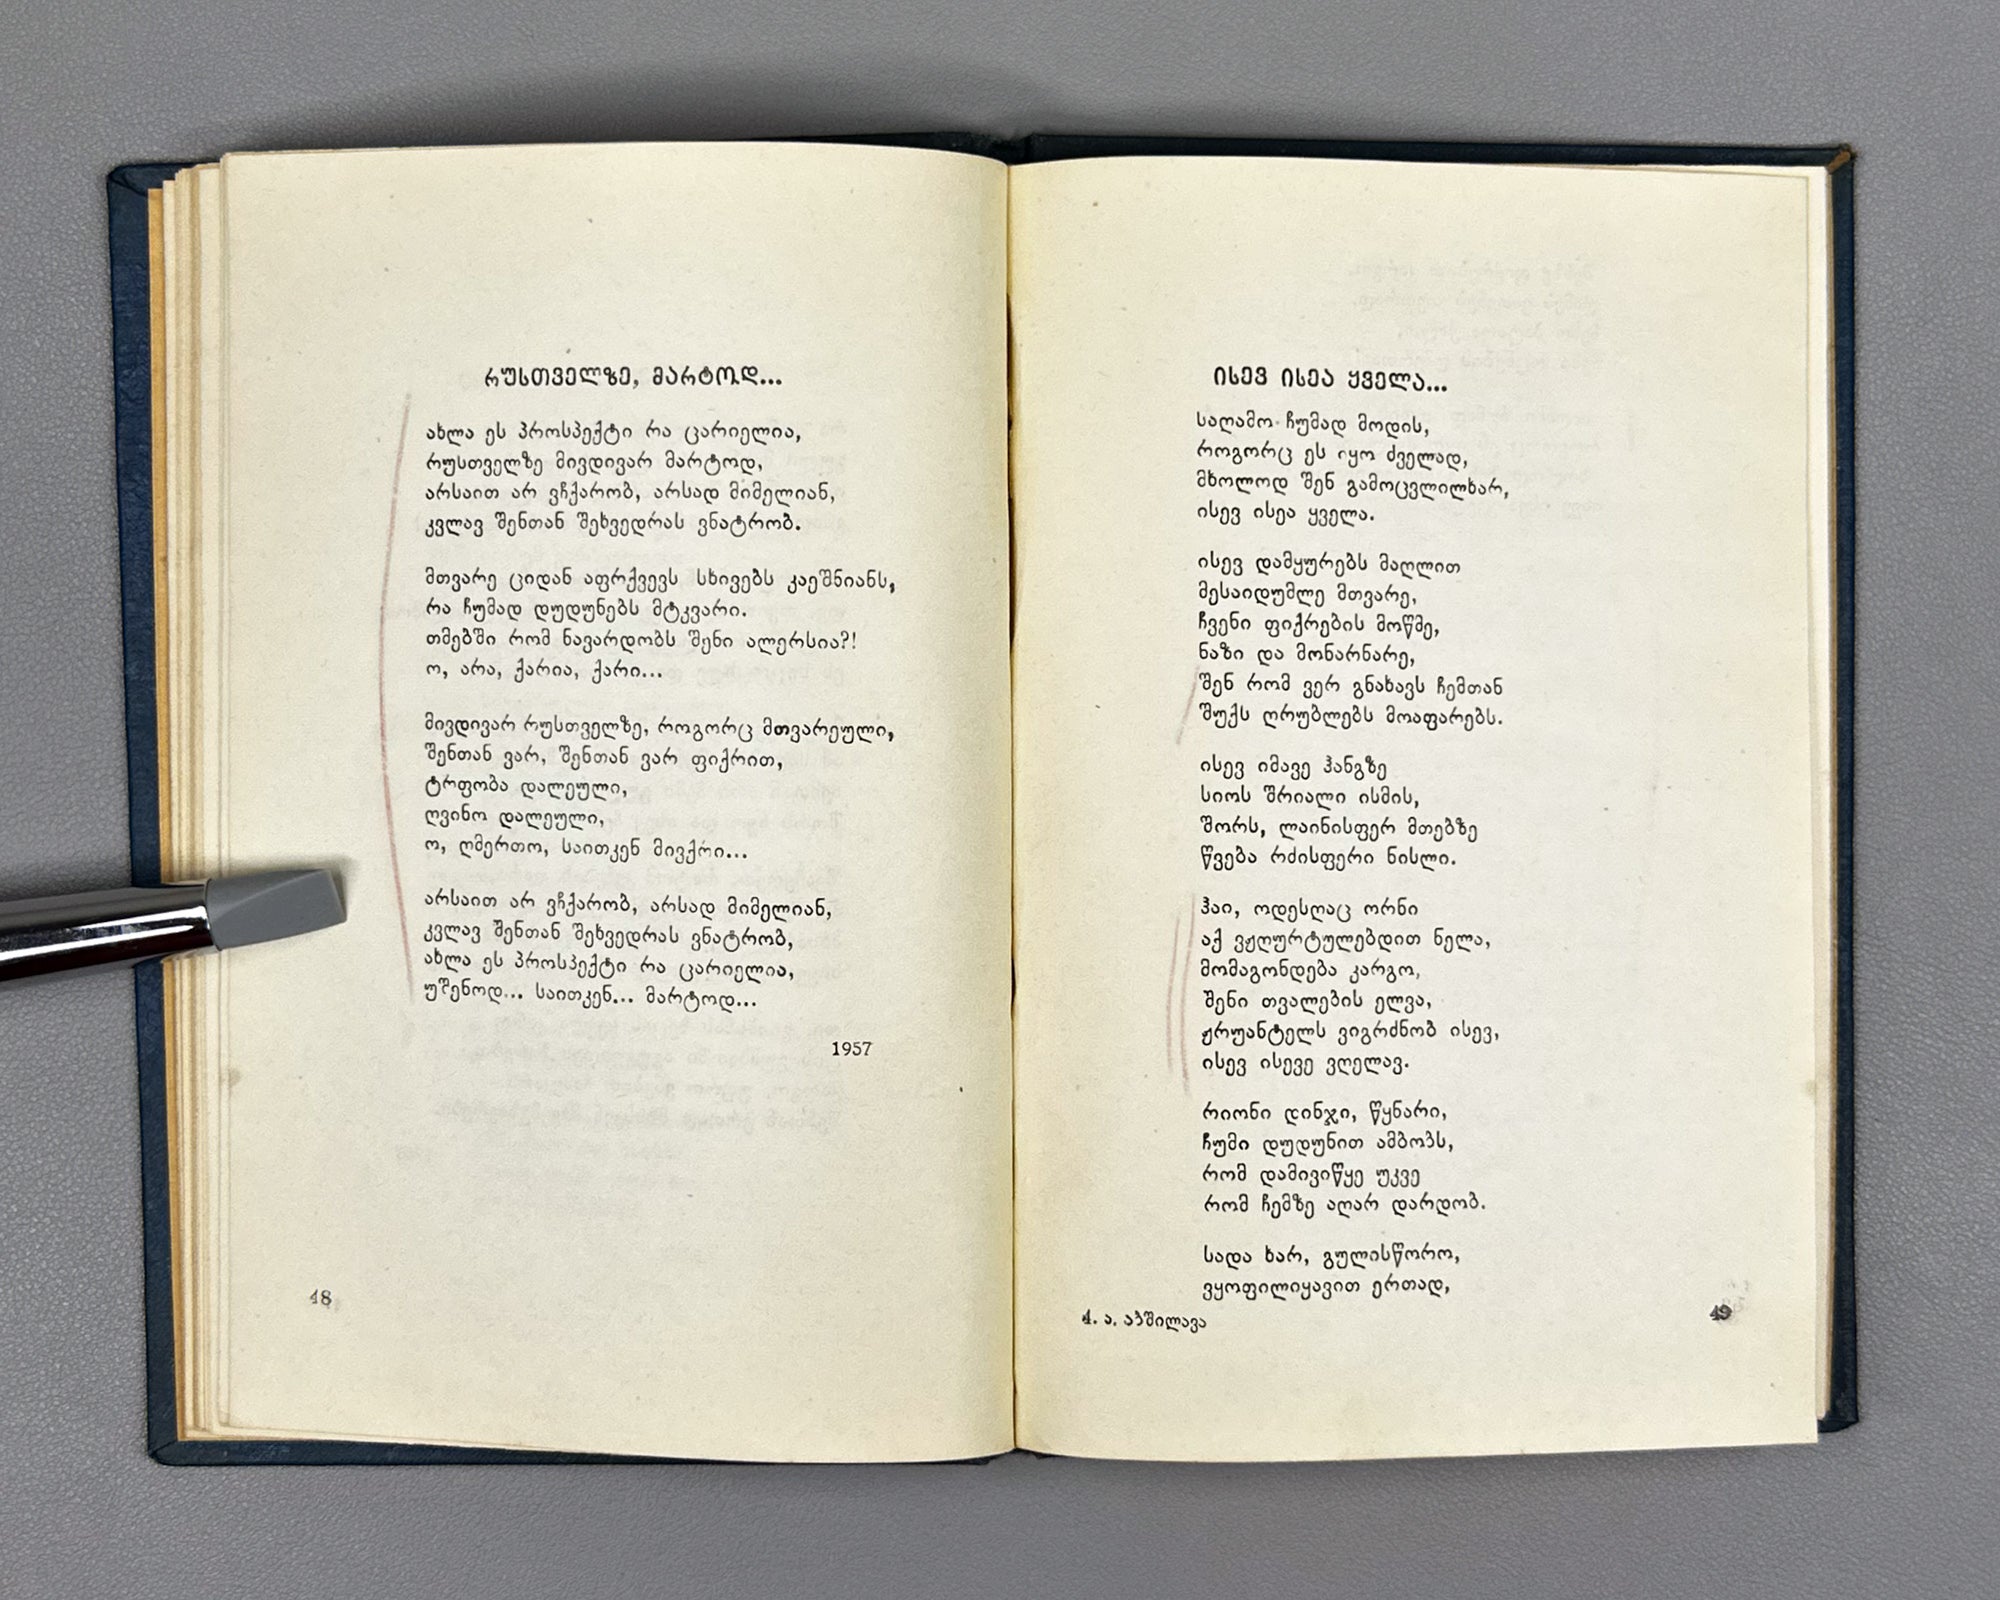 რუსთველზე, მარტოდ...
ახლა ეს პროსპექტი რა ცარიელია,
რუსთველზე მივდივარ მარტოდ,
არსაით არ ვჩქარობ, არსად მიმელიან,
კვლავ შენთან შეხვედრას ვნატრობ.
მთვარე ციდან აფრქვევს სხივებს კაეშნიანს,
რა ჩუმად დუდუნებს მტკვარი.
თმებში რომ ნავარდობს შენი ალერსია?!
ო, არა, ქარია, ქარი...
მივდივარ რუსთველზე, როგორც მთვარეული,
შენთან ვარ, შენთან ვარ ფიქრით,
ტრფობა დალეული,
ღვინო დალეული,
ო, ღმერთო, საითკენ მივქრი...
არსაით არ ვჩქარობ, არსად მიმელიან,
კვლავ შენთან შეხვედრას ვნატრობ,
ახლა ეს პროსპექტი რა ცარიელია,
უშენოდ... საითკენ... მარტოდ...
1957
48
ისევ ისეა ყველა...
საღამო ჩუმად მოდის,
როგორც ეს იყო ძველად,
მხოლოდ შენ გამოცვლილხარ,
ისევ ისეა ყველა.
ისევ დამყურებს მაღლით
მესაიდუმლე მთვარე,
ჩვენი ფიქრების მოწმე,
ნაზი და მონარნარე,
შენ რომ ვერ გნახავს ჩემთან
შუქს ღრუბლებს მოაფარებს.
ისევ იმავე ჰანგზე
სიოს შრიალი ისმის,
შორს, ლაინისფერ მთებზე
წვება რძისფერი ნისლი.
ჰაი, ოდესღაც ორნი
აქ ვჟღურტულებდით ნელა,
მომაგონდება კარგო,
შენი თვალების ელვა,
ჟრუანტელს ვიგრძნობ ისევ,
ისევ ისევე ვღელავ.
რიონი დინჯი, წყნარი,
ჩუმი დუდუნით ამბობს,
რომ დამივიწყე უკვე
რომ ჩემზე აღარ დარდობ.
სადა ხარ, გულისწორო,
ვყოფილიყავით ერთად,
4. ა. აბშილავა
49